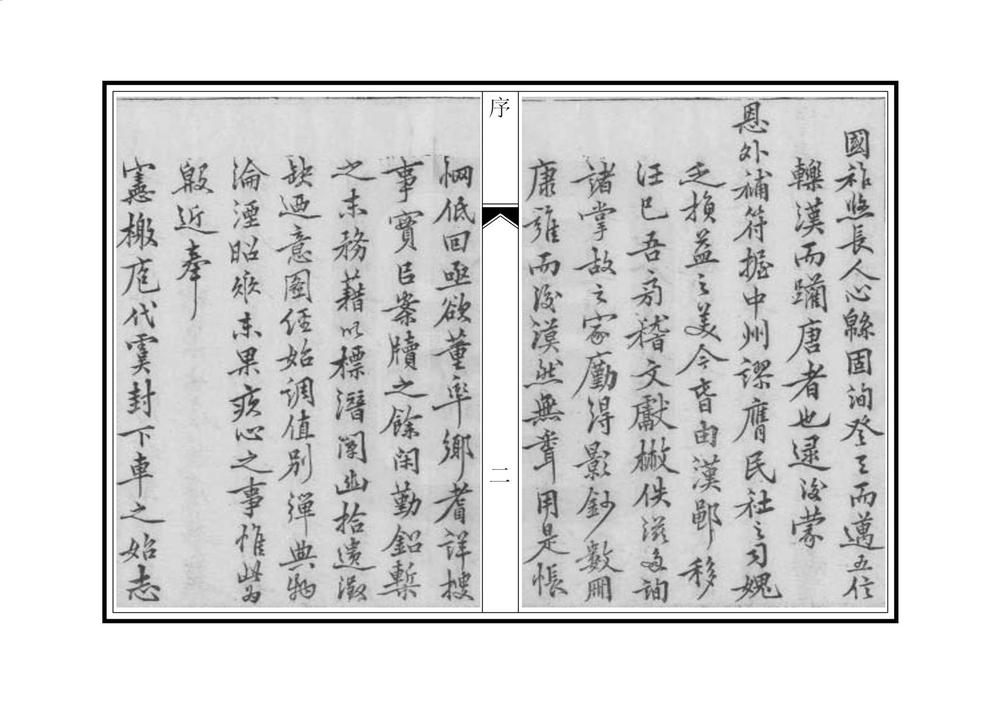 國祚悠長人心緜固洵登三而邁五
轢漢而躪唐者也逯浚蒙
恩外補符握中州謬膺民社之司媿
乏損益之美今春由漢鄖移
汪巳吾舟稽文獻檄佚滋多詢
諸掌故之家廑得影鈔數冊
康雍而後漠然無聋用是悵
序
二
惘低回亟欲董率鄉耆詳搜
事實臣案牘之餘閑勤鉛槧
之末務藉以標潛闡幽拾遺
缺迺意圖經始調值別殫典物
淪湮昭烋未果疚心之事惟此為
殷近奉
憲檄庀代虞封下車之始志